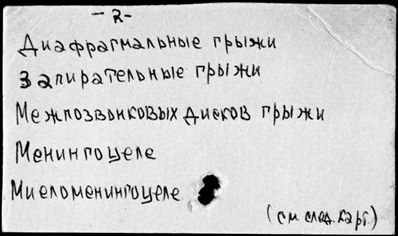 - 2 -
Диафрагмальные грыжи
Запирательные грыжи
Межпозвонковых дисков грыжи
Менингоцеле
Миеломенингоцеле
(см след. карт.)